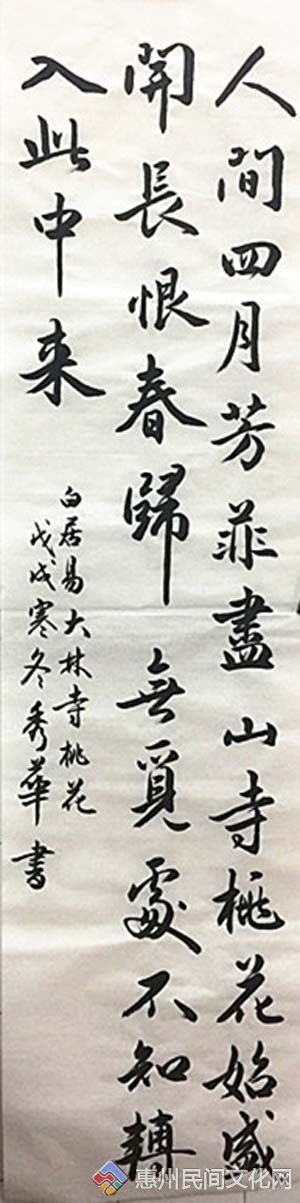 人間四月芳菲盡山寺桃花始盛
開長恨春歸無覓處不知轉
入此中来
白居易大林寺桃花
戊戌寒冬秀華書
惠州民间文化网